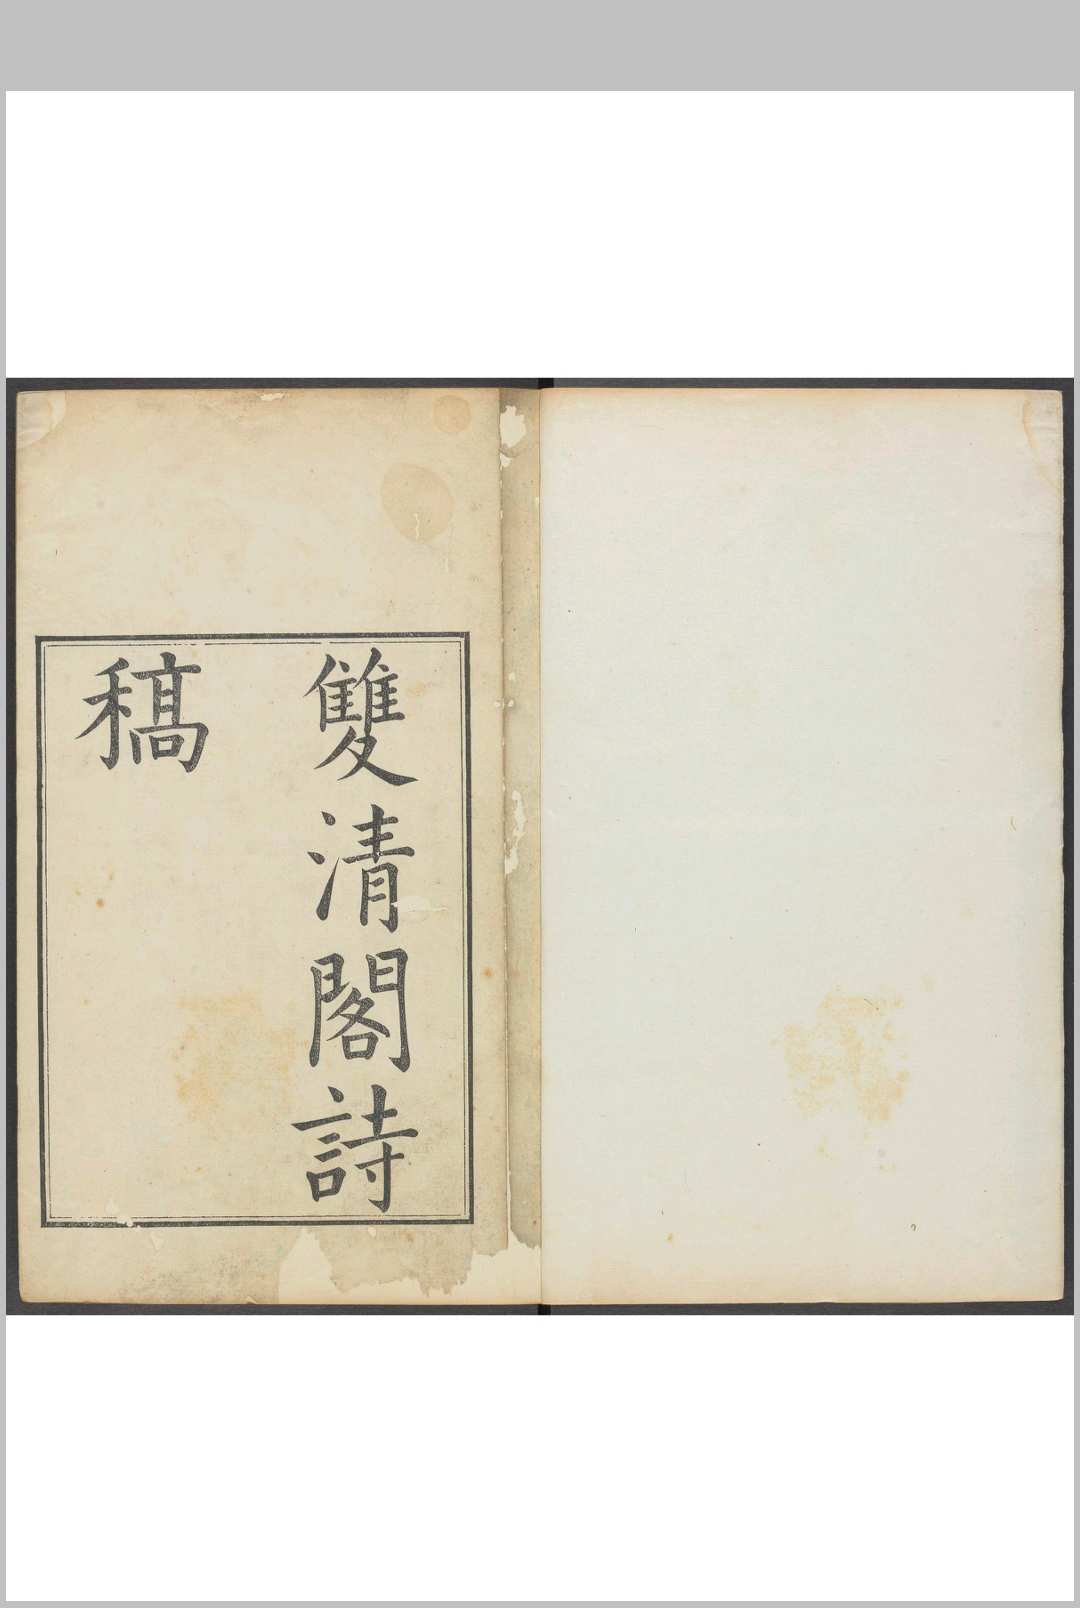 雙清閣詩
稿